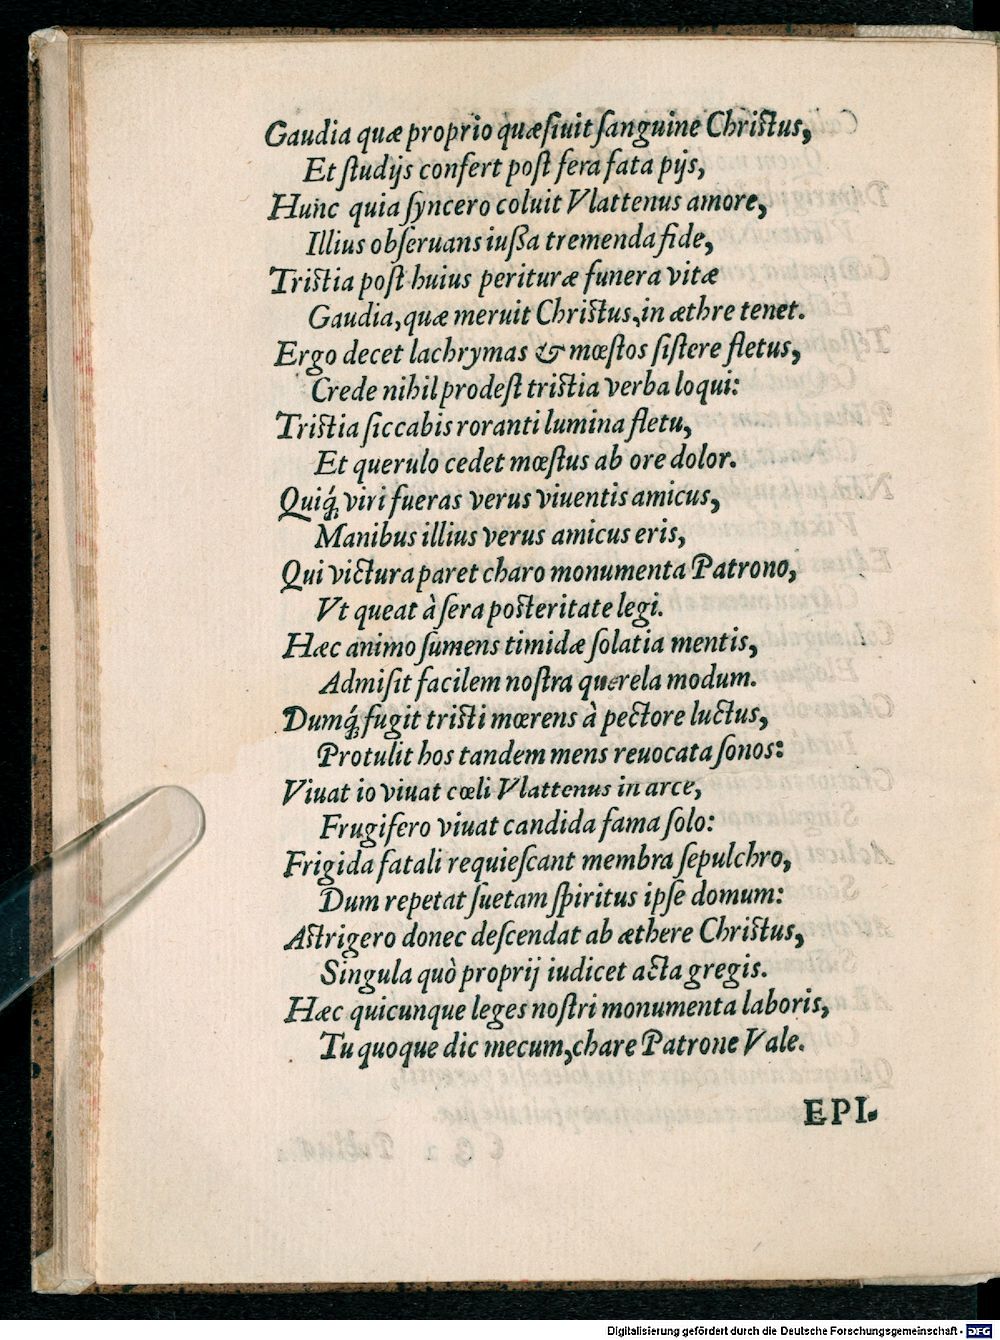 Gaudia quæ proprio quæſiuit ſanguine Chriſtus,
Et ſtudijs confert poſt fera fata pijs,
Hunc quia ſyncero coluit Vlattenus amore,
Illius obſeruans iußa tremenda fide,
Triſtia poſt huius perituræ funera vitæ
Gaudia, quæ meruit Chriſtus, in æthre tenet.
Ergo decet lachrymas & mœſtos ſiſtere fletus,
Crede nihil prodeſt triſtia verba loqui:
Triſtia ſiccabis roranti lumina fletu,
Et querulo cedet mœſtus ab ore dolor.
Quiq́; viri fueras verus viuentis amicus,
Manibus illius verus amicus eris,
Qui victura paret charo monumenta Patrono,
Vt queat à ſera poſteritate legi.
Hæc animo ſumens timidæ ſolatia mentis,
Admiſit facilem noſtra querela modum.
Dumq́; fugit triſti mœrens à pectore luctus,
Protulit hos tandem mens reuocata ſonos:
Viuat io viuat cœli Vlattenus in arce,
Frugifero viuat candida fama ſolo:
Frigida fatali requieſcant membra ſepulchro,
Dum repetat ſuetam ſpiritus ipſe domum:
Aſtrigero donec deſcendat ab æthere Chriſtus,
Singula quò proprij iudicet acta gregis.
Hæc quicunque leges noſtri monumenta laboris,
Tu quoque dic mecum, chare Patrone Vale.
EPI.
Digitalisierung gefördert durch die Deutsche Forschungsgemeinschaft - DFG